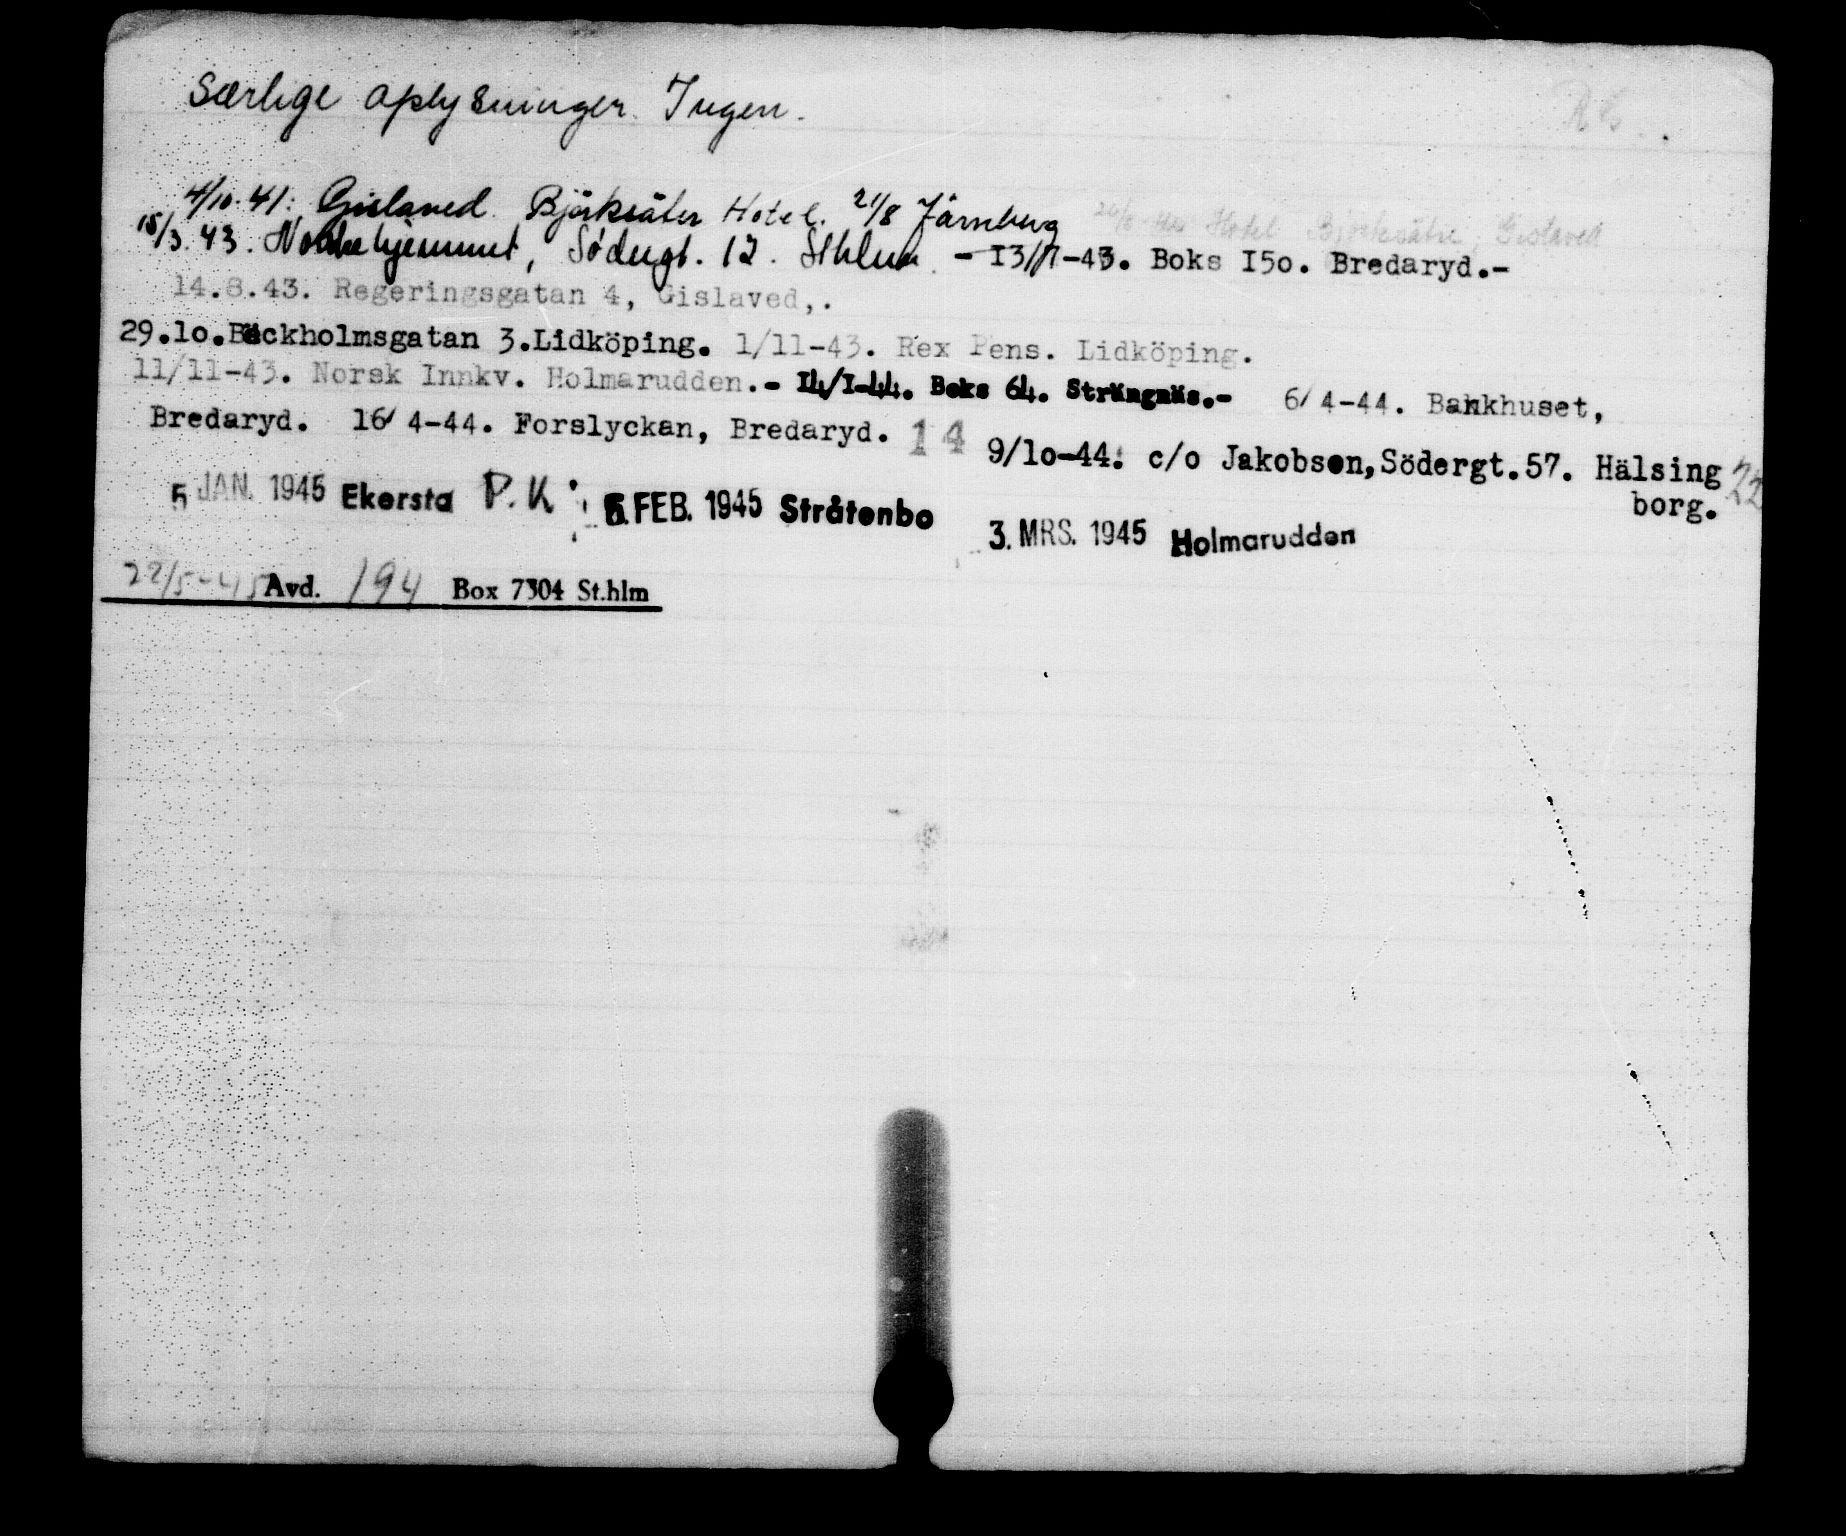 Særlige oplysninger. Ingen.
4/10.41. Gislaved. Björksäter Hotel. 21/8 Järnberg
Hotel Björksäter, Gislaved
15/3.43. Södergt. 12. Sthlm. - I3/7-43. Boks I5o. Bredaryd.-
14.8.43. Regeringsgatan 4, Gislaved,.
29.1o. Bäckholmsgatan 3.Lidköping. 1/11-43. Rex Pens. Lidköping.
11/11-43. Norsk Innkv. Holmarudden.- I4/I-44. Boks 64. Strängnäs.- 6/4-44. Bankhuset,
Bredaryd. 16/4-44. Forslyckan, Bredaryd. 14 9/1o-44. c/o Jakobsen,Södergt.57. Hälsing 22
borg.
5 JAN. 1945 Ekersta P.K. 6. FEB. 1945 Stråtenbo
3. MRS. 1945 Holmarudden
22/5-45 Avd. 194 Box 7304 St.hlm